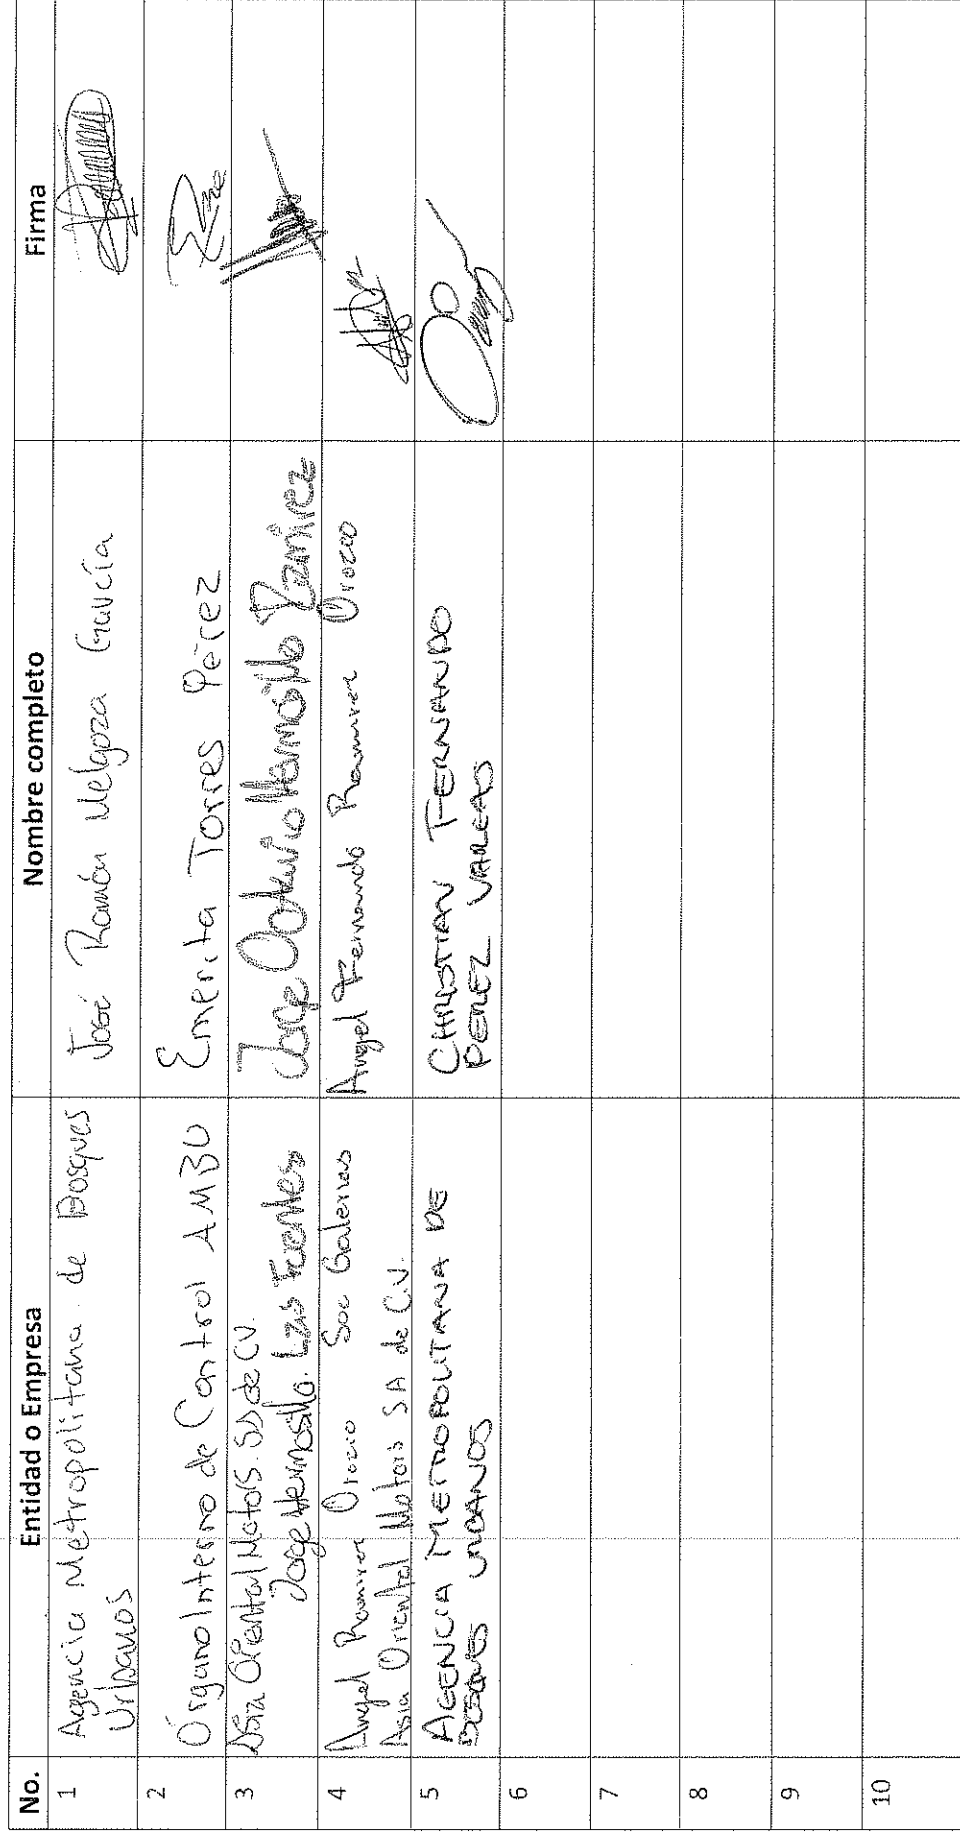 No. Entidad o Empresa Nombre completo Firma
1 Agencia Metropolitana de Bosques
Urbanos
José Ramón Melgoza García
2 Órgano Interno de Control AMBU
Emerita Torres Pérez
3 Asia Oriental Motors. SA de CV.
Jorge Hermosillo. Las Fuentes
Jorge Octavio Hermosillo Ramirez
4 Angel Ramirez Orozco Suc Galerias
Asia Oriental Motors SA de C.V.
Angel Fernando Ramirez Orozco
5 AGENCIA METROPOLITANA DE
BOSQUES URBANOS
CHRISTIAN FERNANDO
PEREZ VARGAS
6
7
8
9
10